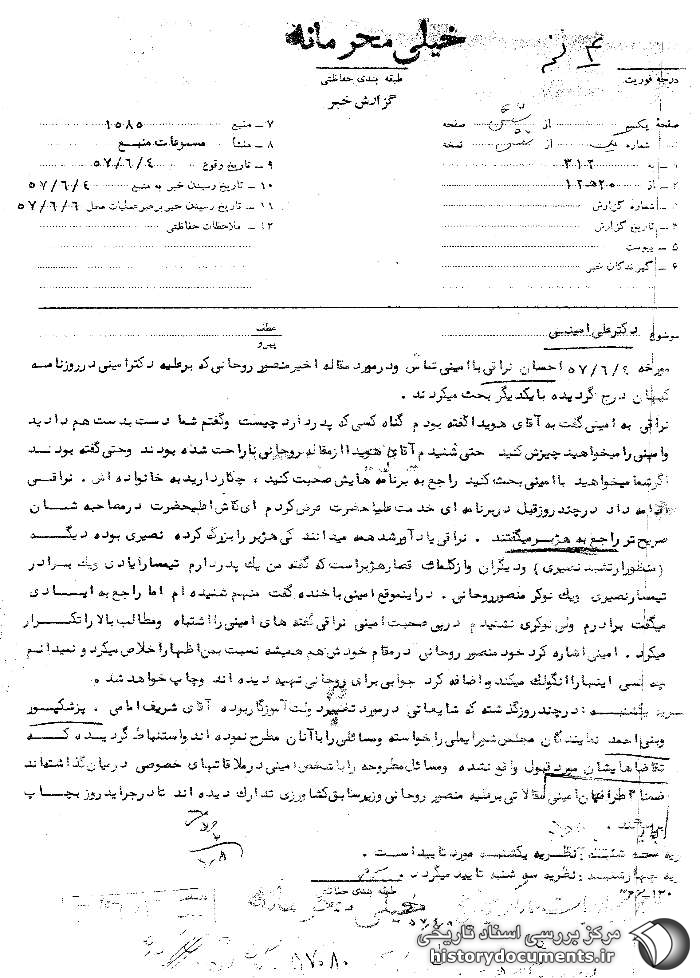 خیلی محرمانه
طبقه بندی حفاظتی
درجه فوریت
گزارش خبر
صفحه یکم از صفحه
۷ ـ منبع ۱۵۸۵
شماره از نسخه
۸ ـ منشأ مسموعات منبع
۱ ـ به ۳۱۲
۹ ـ تاریخ وقوع ۵۷/۶/۴
۲ ـ از ۲۰ ه ۱۲
۱۰ ـ تاریخ رسیدن خبر به منبع ۵۷/۶/۴
۳ ـ شماره گزارش
۱۱ ـ تاریخ رسیدن خبر برهبر عملیات محل ۵۷/۶/۶
۴ ـ تاریخ گزارش
۱۲ ـ ملاحظات حفاظتی
۵ ـ پیوست
۶ ـ گیرندگان خبر
موضوع دکتر علی امینی
عطف
پیرو
مورخه ۵۷/۶/۴ احسان نراقی با امینی تماس و در مورد مقاله اخیر منصور روحانی که بر علیه دکتر امینی در روزنامه
کیهان درج گردیده با یکدیگر بحث میکردند .
نراقی به امینی گفت به آقای هویدا گفته بودم گناه کسی که پدر دارد چیست و گفتم شما دست بدست هم دادید
و امینی را میخواهید چیزش کنید حتی شنیدم آقای هویدا از مقاله روحانی ناراحت شده بودند و حتی گفته بودند
اگر شما میخواهید با امینی بحث کنید راجع به برنامه هایش صحبت کنید ، چکار دارید به خانواده اش . نراقی
ادامه داد در چند روز قبل در برنامه ای خدمت علیا حضرت عرض کردم ای کاش اعلیحضرت در مصاحبه شان
صریح تر راجع به هژبر میگفتند . نراقی یادآور شد همه میدانند کی هژبر را بزرگ کرده نصیری بوده دیگه
(منظور ارتشبد نصیری) و دیگران و از کلمات قصار هژبر است که گفته من یک پدر دارم تیمسار ایادی ویک برادر
تیمسار نصیری ویک نوکر منصور روحانی . در اینموقع امینی با خنده گفت منهم شنیده ام اما راجع به ایادی
میگفت برادرم ولی نوکری نشنیدم در پی صحبت امینی نراقی گفته های امینی را اشتباه ومطالب بالا را تکرار
میکرد . امینی اشاره کرد خود منصور روحانی در مقام خودش هم همیشه نسبت بمن اظهار اخلاص میکرد و نمیدانم
چه کسی اینها را انگولک میکند و اضافه کرد جوابی برای روحانی تهیه دیده اند و چاپ خواهد شد .
نظریه یکشنبه : در چند روز گذشته که شایعاتی در مورد تغییر دولت آموزگار بوده آقای شریف امامی ، پزشکپور
وبنی احمد نمایندگان مجلس شورایملی را خواسته ومسائلی را با آنان مطرح نموده اند و استنباط گردیده که
تقاضاهایشان مورد قبول واقع نشده ومسائل مطروحه را با شخص امینی در ملاقاتهای خصوصی در میان گذاشته اند
ضمنا اطرافیان امینی مقالاتی بر علیه منصور روحانی وزیر سابق کشاورزی تدارک دیده اند تا در جراید روز بچاپ
برسانند .
نظریه سه شنبه : نظریه یکشنبه مورد تایید است .
نظریه چهارشنبه : نظریه سه شنبه تایید میگردد .
طبقه بندی حفاظتی
خیلی محرمانه
مرکز بررسی اسناد تاریخی
historydocuments.ir